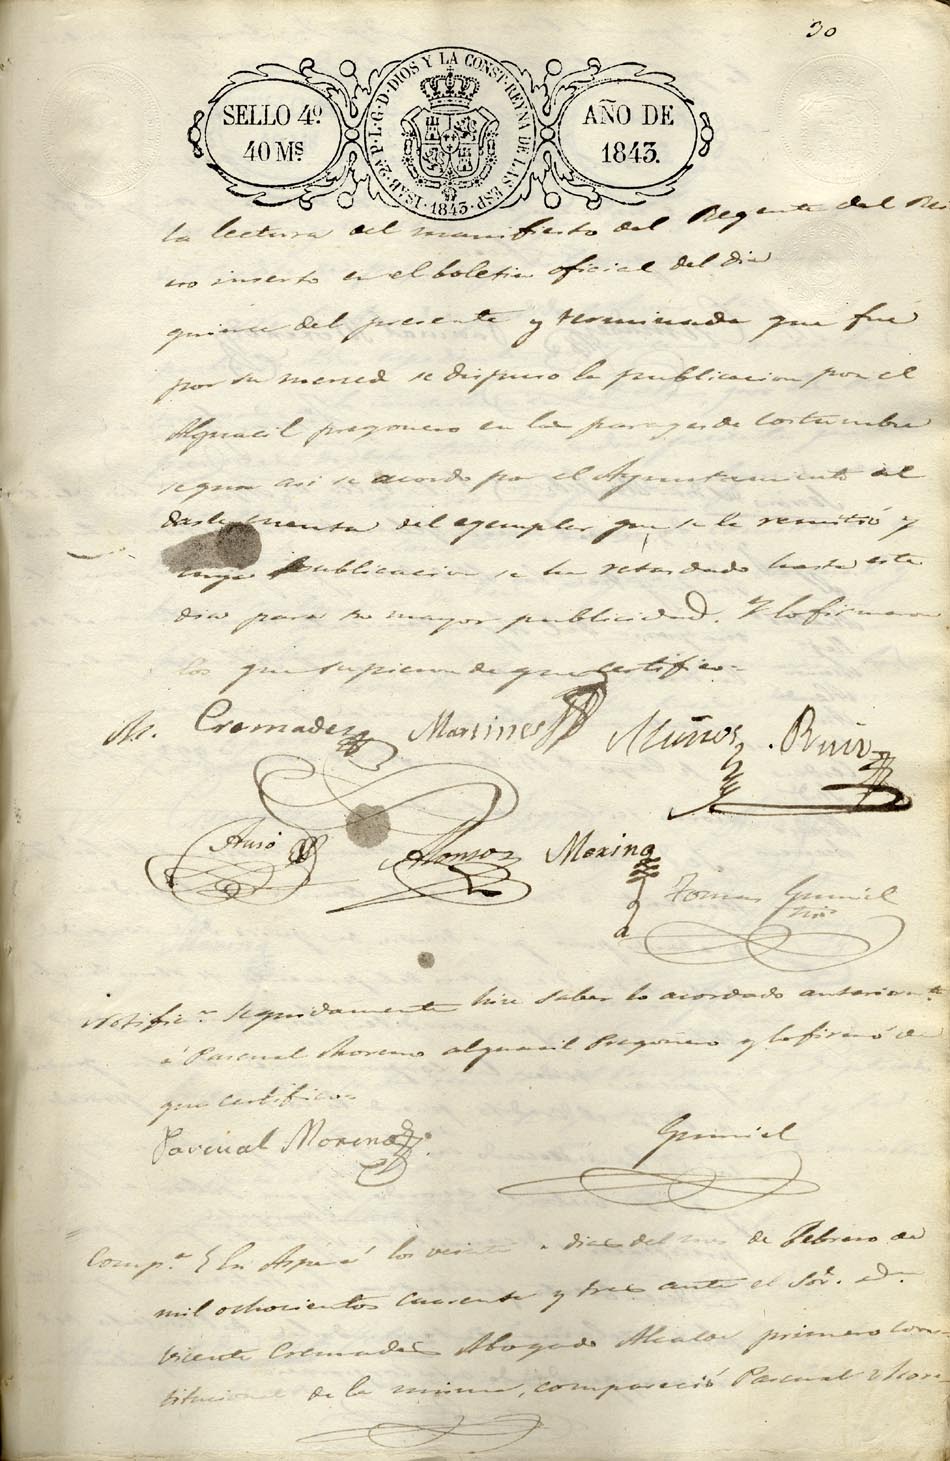 30
SELLO 4º
40 Mˢ
ISAB. 2ª P. L. G. D. DIOS Y LA CONST. REYNA DE LAS ESP.
1843
AÑO DE
1843.
la lectura del manifiesto del Regente del Rei
no inserto en el boletin oficial del dia
quince del presente y terminada que fué
por su merced se dispuso la publicacion por el
Alguacil pregonero en los parages de costumbre
segun asi se acordo por el Ayuntamiento al
darle cuenta del egemplar que se le remitió y
cuya publicacion se ha retardado hasta este
dia para su mayor publicidad. Y lo firmaron
los que supieron de que certifico=
M. Cremades Martines Muños. Ruiz
Ausó Alonso Merino
Tomas Gumiel
Srio
Notific.ⁿ Seguidamente hice saber lo acordado anteriorm.te
á Pascual Moreno alguacil Pregonero y lo firmó de
que certifico=
Pascual Moreno
Gumiel
Comp.ª En Aspe á los veinte dias del mes de Febrero de
mil ochocientos cuarenta y tres ante el Sor. D.
Vicente Cremades Abogado Alcalde primero cons
titucional de la misma, compareció Pascual More